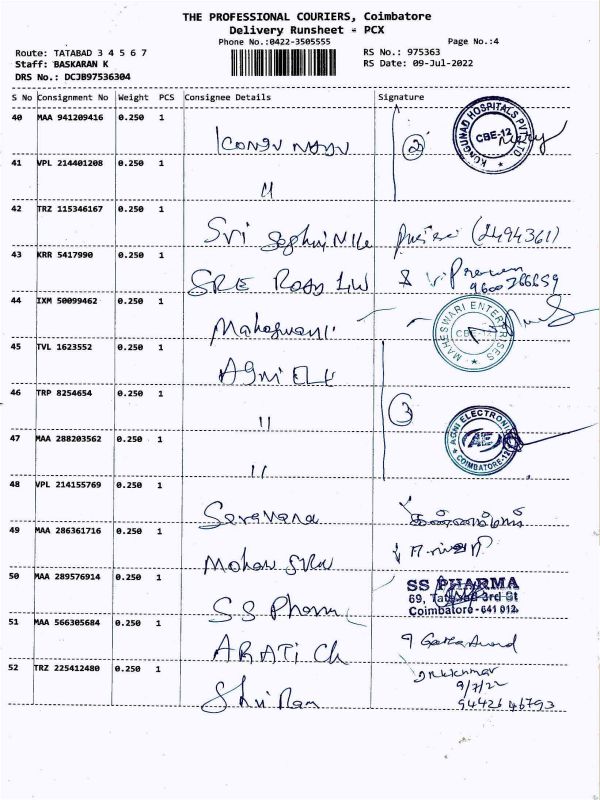 THE PROFESSIONAL COURIERS, Coimbatore
Delivery Runsheet - PCX
Phone No.:0422-3505555
Page No.:4
Route: TATABAD 3 4 5 6 7
RS No.: 975363
Staff: BASKARAN K
RS Date: 09-Jul-2022
DRS No.: DCJB97536304
S No Consignment No Weight PCS Consignee Details Signature
40 MAA 941209416 0.250 1
2
KONGUNAD HOSPITALS PVT LTD
CBE-12
41 VPL 214401208 0.250 1
"
42 TRZ 115346167 0.250 1
Sri (2494361)
43 KRR 5417990 0.250 1
SRE
44 IXM 50099462 0.250 1
MAHESWARI ENTERPRISES
45 TVL 1623552 0.250 1
AGNI ELE
46 TRP 8254654 0.250 1
"
3
AGNI ELECTRONIC
AE
COIMBATORE-12
47 MAA 288203562 0.250 1
"
48 VPL 214155769 0.250 1
Saravana
49 MAA 286361716 0.250 1
Mohan
50 MAA 289576914 0.250 1
S.S Pharm
SS PHARMA
69, Tatabad 3rd St
Coimbatore-641 012.
51 MAA 566305684 0.250 1
ARATI Ch
52 TRZ 225412480 0.250 1
Shri Ram
9/7/22
9442646793